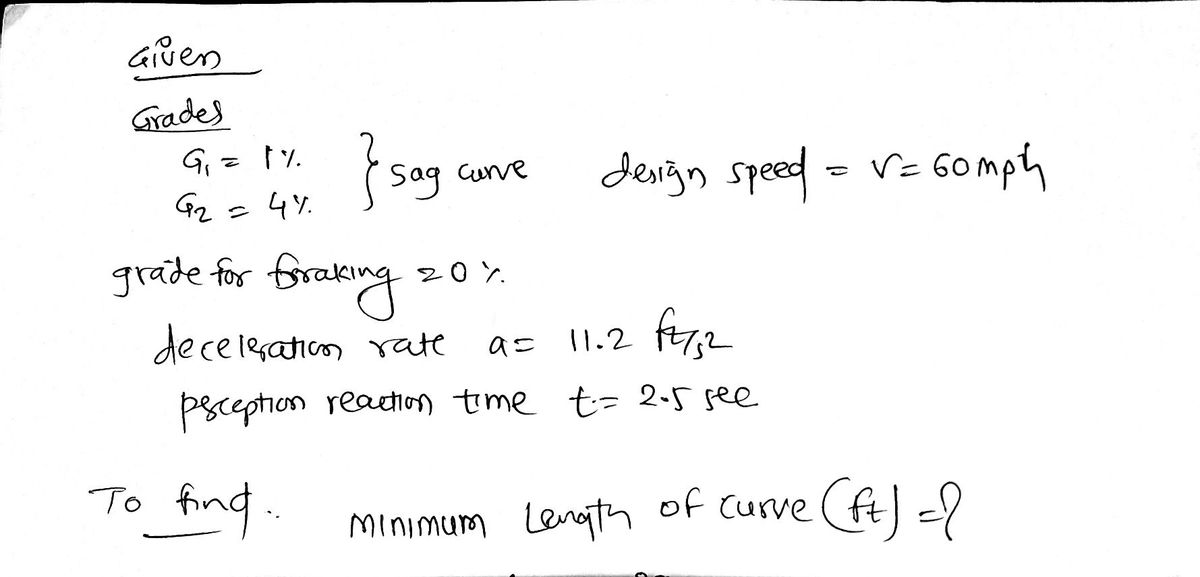 Given
Grades
G₁ = 1%.
G₂ = 4%.
} sag curve
design speed = V = 60 mph
grade for braking = 0 %.
deceleration rate a = 11.2 ft/s2
perception reaction time t = 2.5 sec
To find..
Minimum Length of curve (ft) = ?